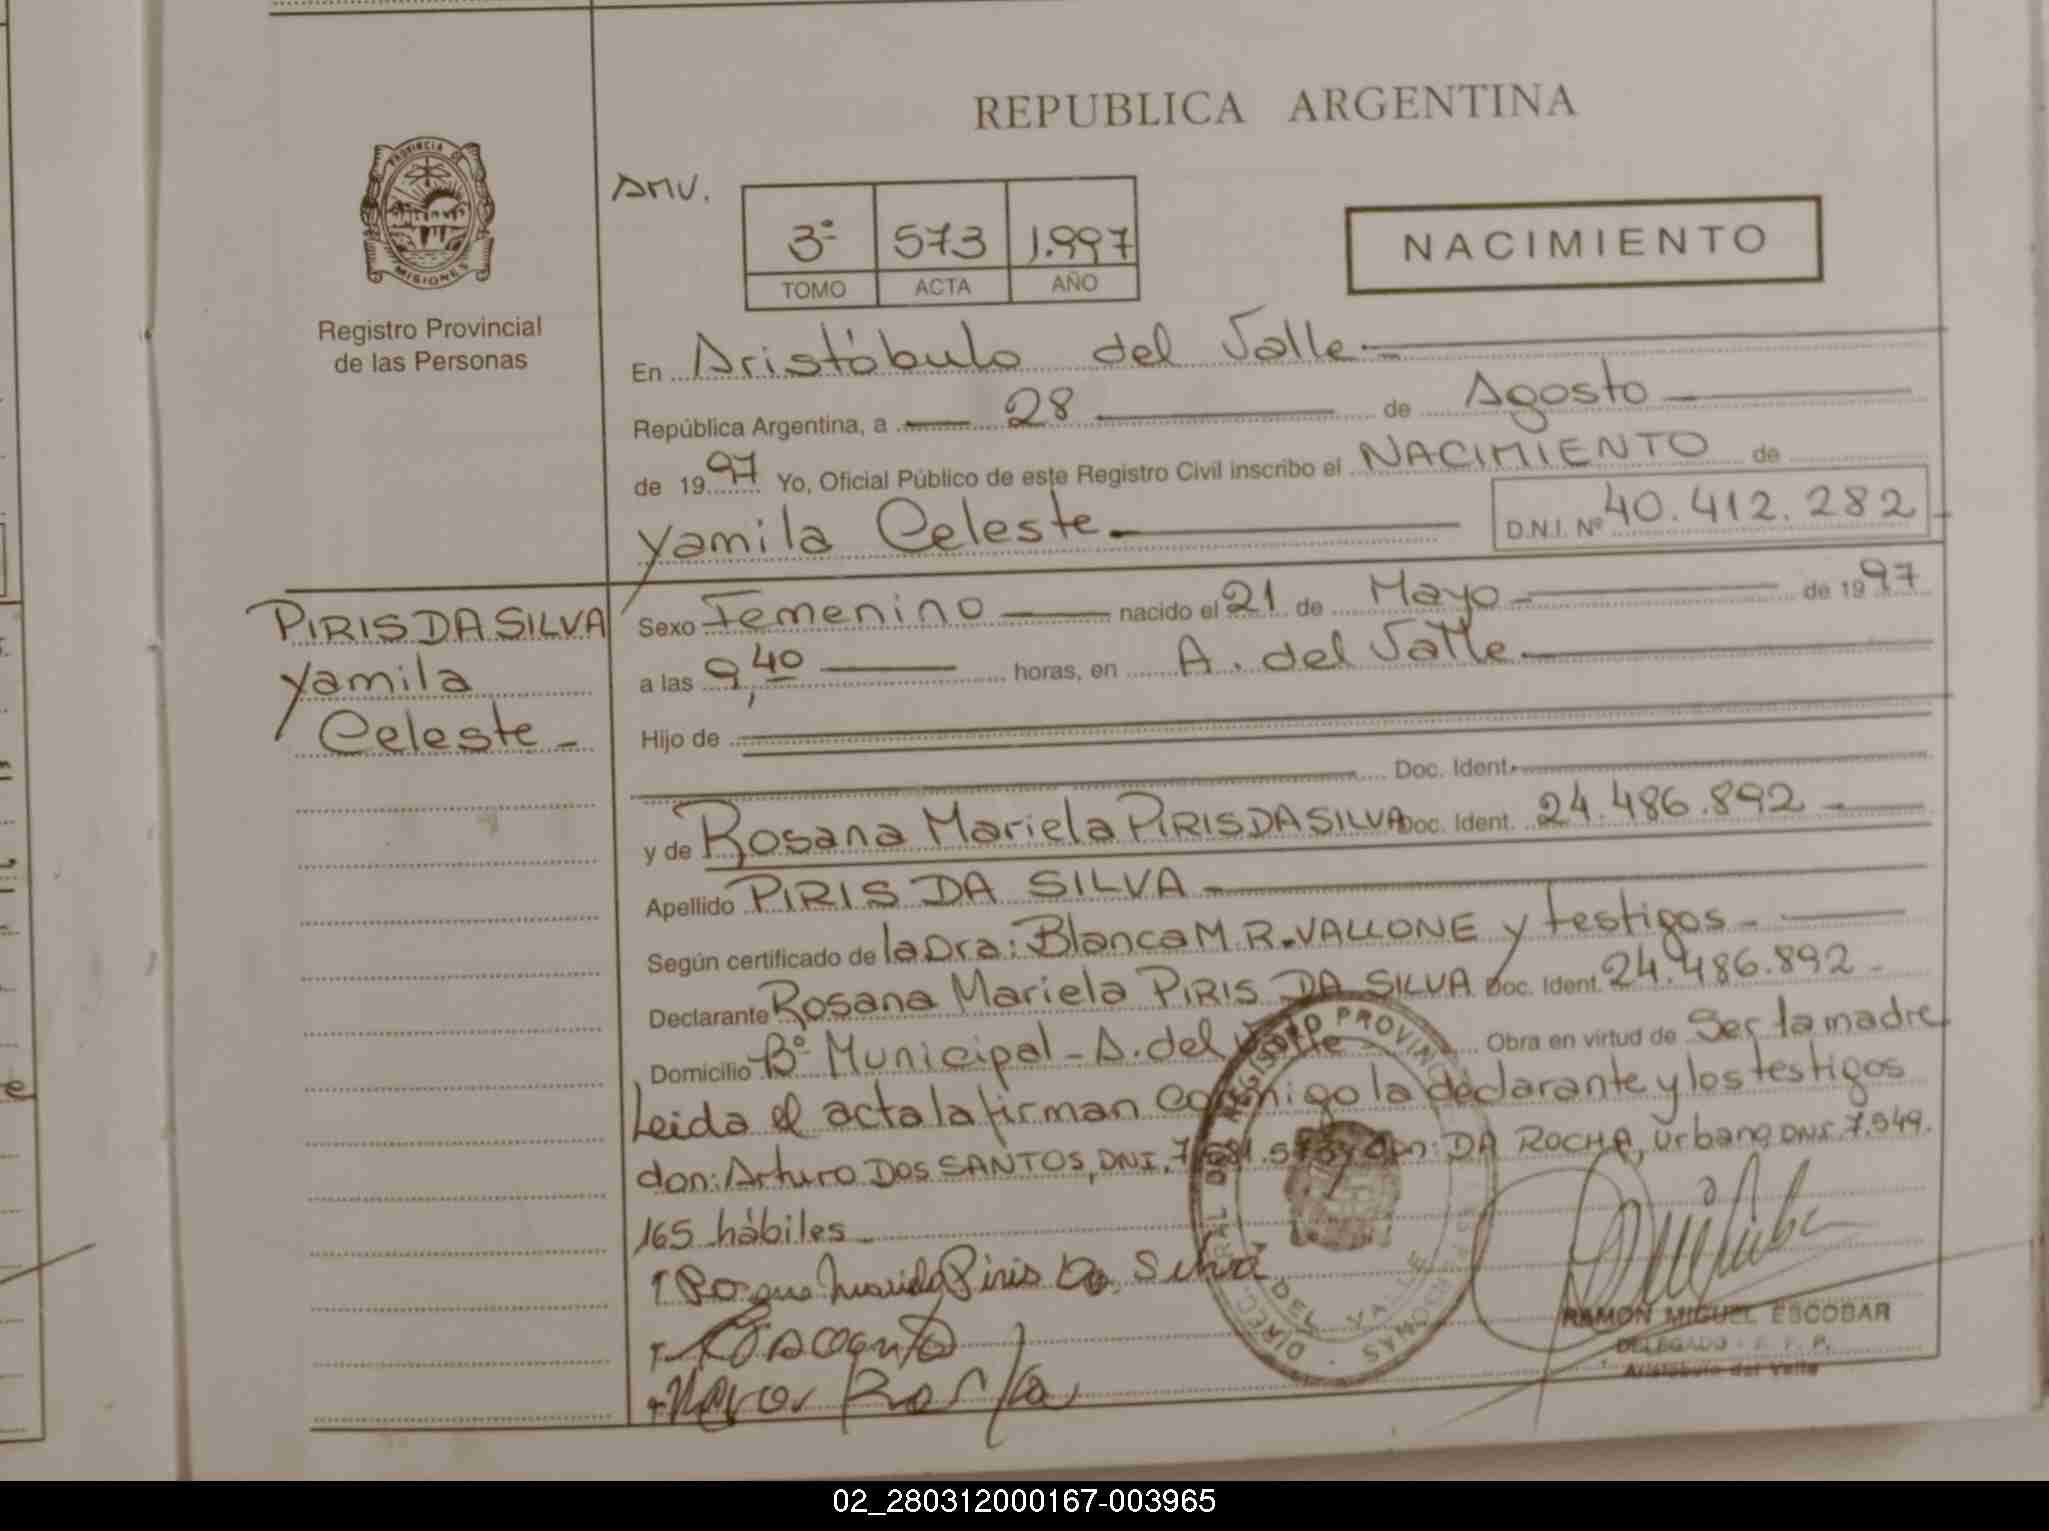 REPUBLICA ARGENTINA
PROVINCIA DE
MISIONES
Registro Provincial
de las Personas
AMV.
3º 573 1.997
TOMO ACTA AÑO
NACIMIENTO
En Aristóbulo del Valle
República Argentina, a 28 de Agosto
de 1997 Yo, Oficial Público de este Registro Civil inscribo el NACIMIENTO de
Yamila Celeste D.N.I. Nº 40.412.282
PIRIS DA SILVA
Yamila
Celeste
Sexo Femenino nacido el 21 de Mayo de 1997
a las 9,40 horas, en A. del Valle
Hijo de
Doc. Ident.
y de Rosana Mariela PIRIS DA SILVA Doc. Ident. 24.486.892
Apellido PIRIS DA SILVA
Según certificado de la Dra: Blanca M. R. VALLONE y testigos
Declarante Rosana Mariela PIRIS DA SILVA Doc. Ident. 24.486.892
Domicilio Bº Municipal - A. del Valle Obra en virtud de Ser la madre
Leida el acta la firman conmigo la declarante y los testigos
don: Arturo DOS SANTOS, DNI. don: DA ROCHA, Urbano DNI. 7.549.
165 hábiles
Piris Da Silva
DIREC. GRAL DEL REGISTRO PROVINCIAL DE LAS PERSONAS
DEL VALLE
RAMON MIGUEL ESCOBAR
DELEGADO - R. P. P.
Aristóbulo del Valle
02_280312000167-003965